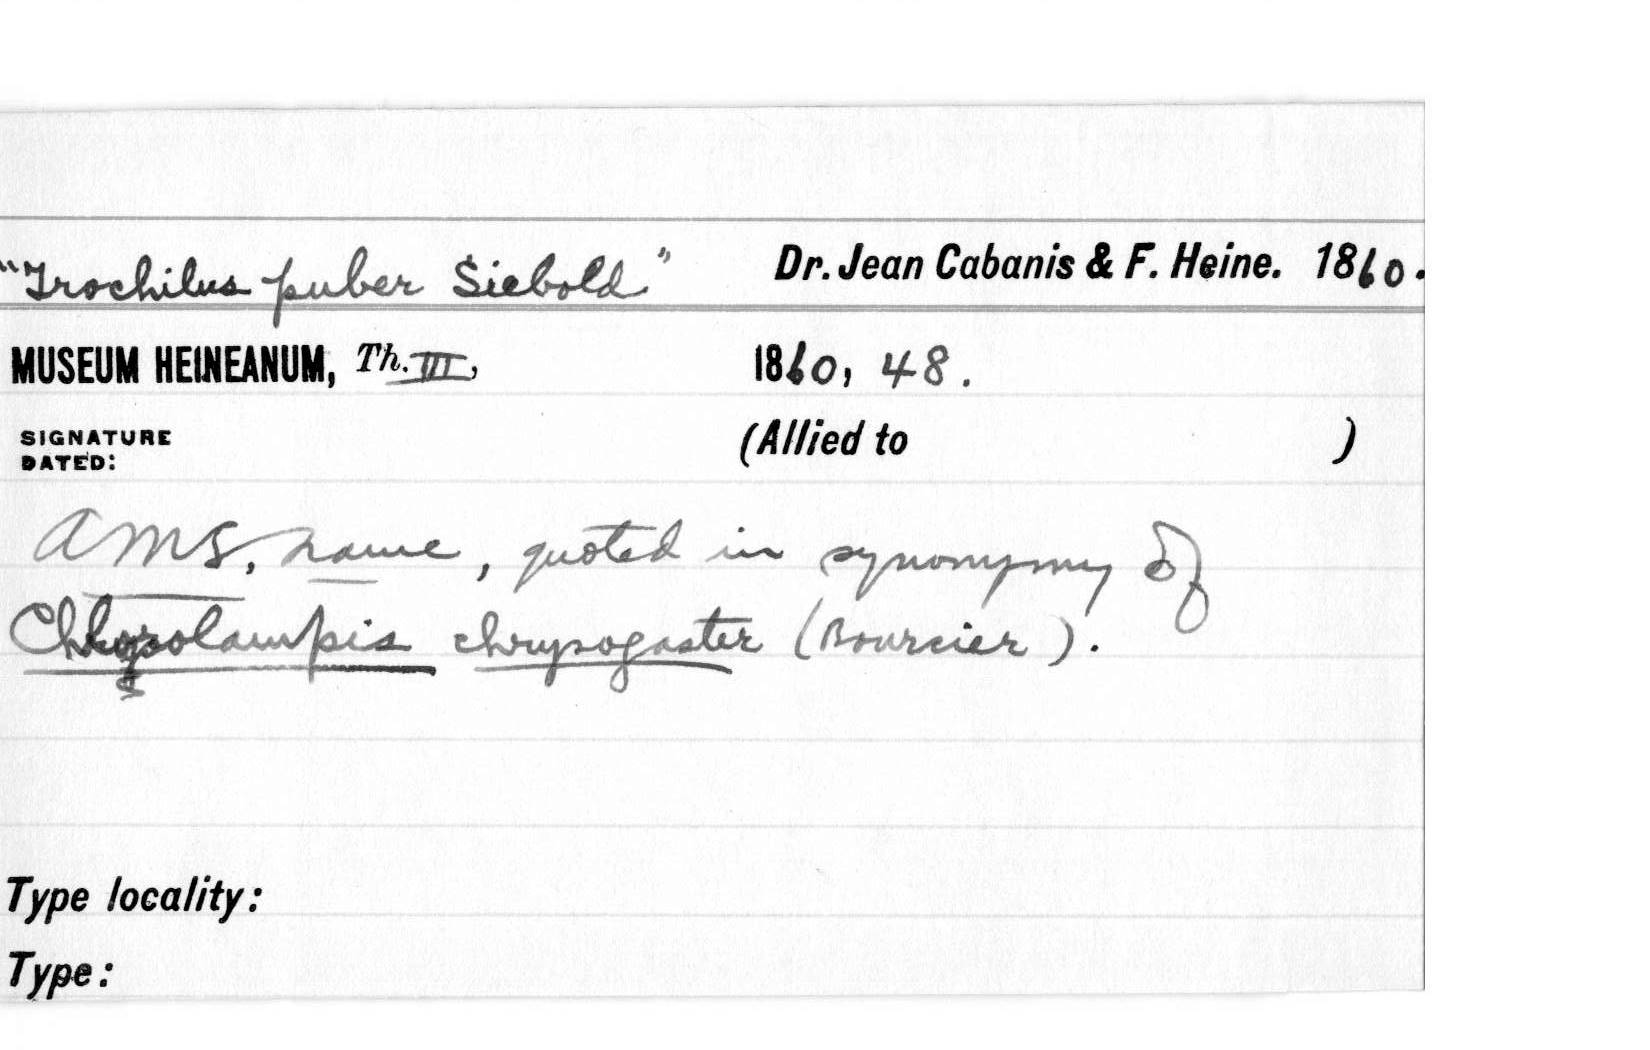 "Trochilus puber Siebold" Dr. Jean Cabanis & F. Heine. 1860.
MUSEUM HEINEANUM, Th. III, 1860, 48.
SIGNATURE
DATED:
(Allied to )
A MS. name, quoted in synonymy of
Chlorolampis chrysogaster (Bourcier).
Type locality:
Type: